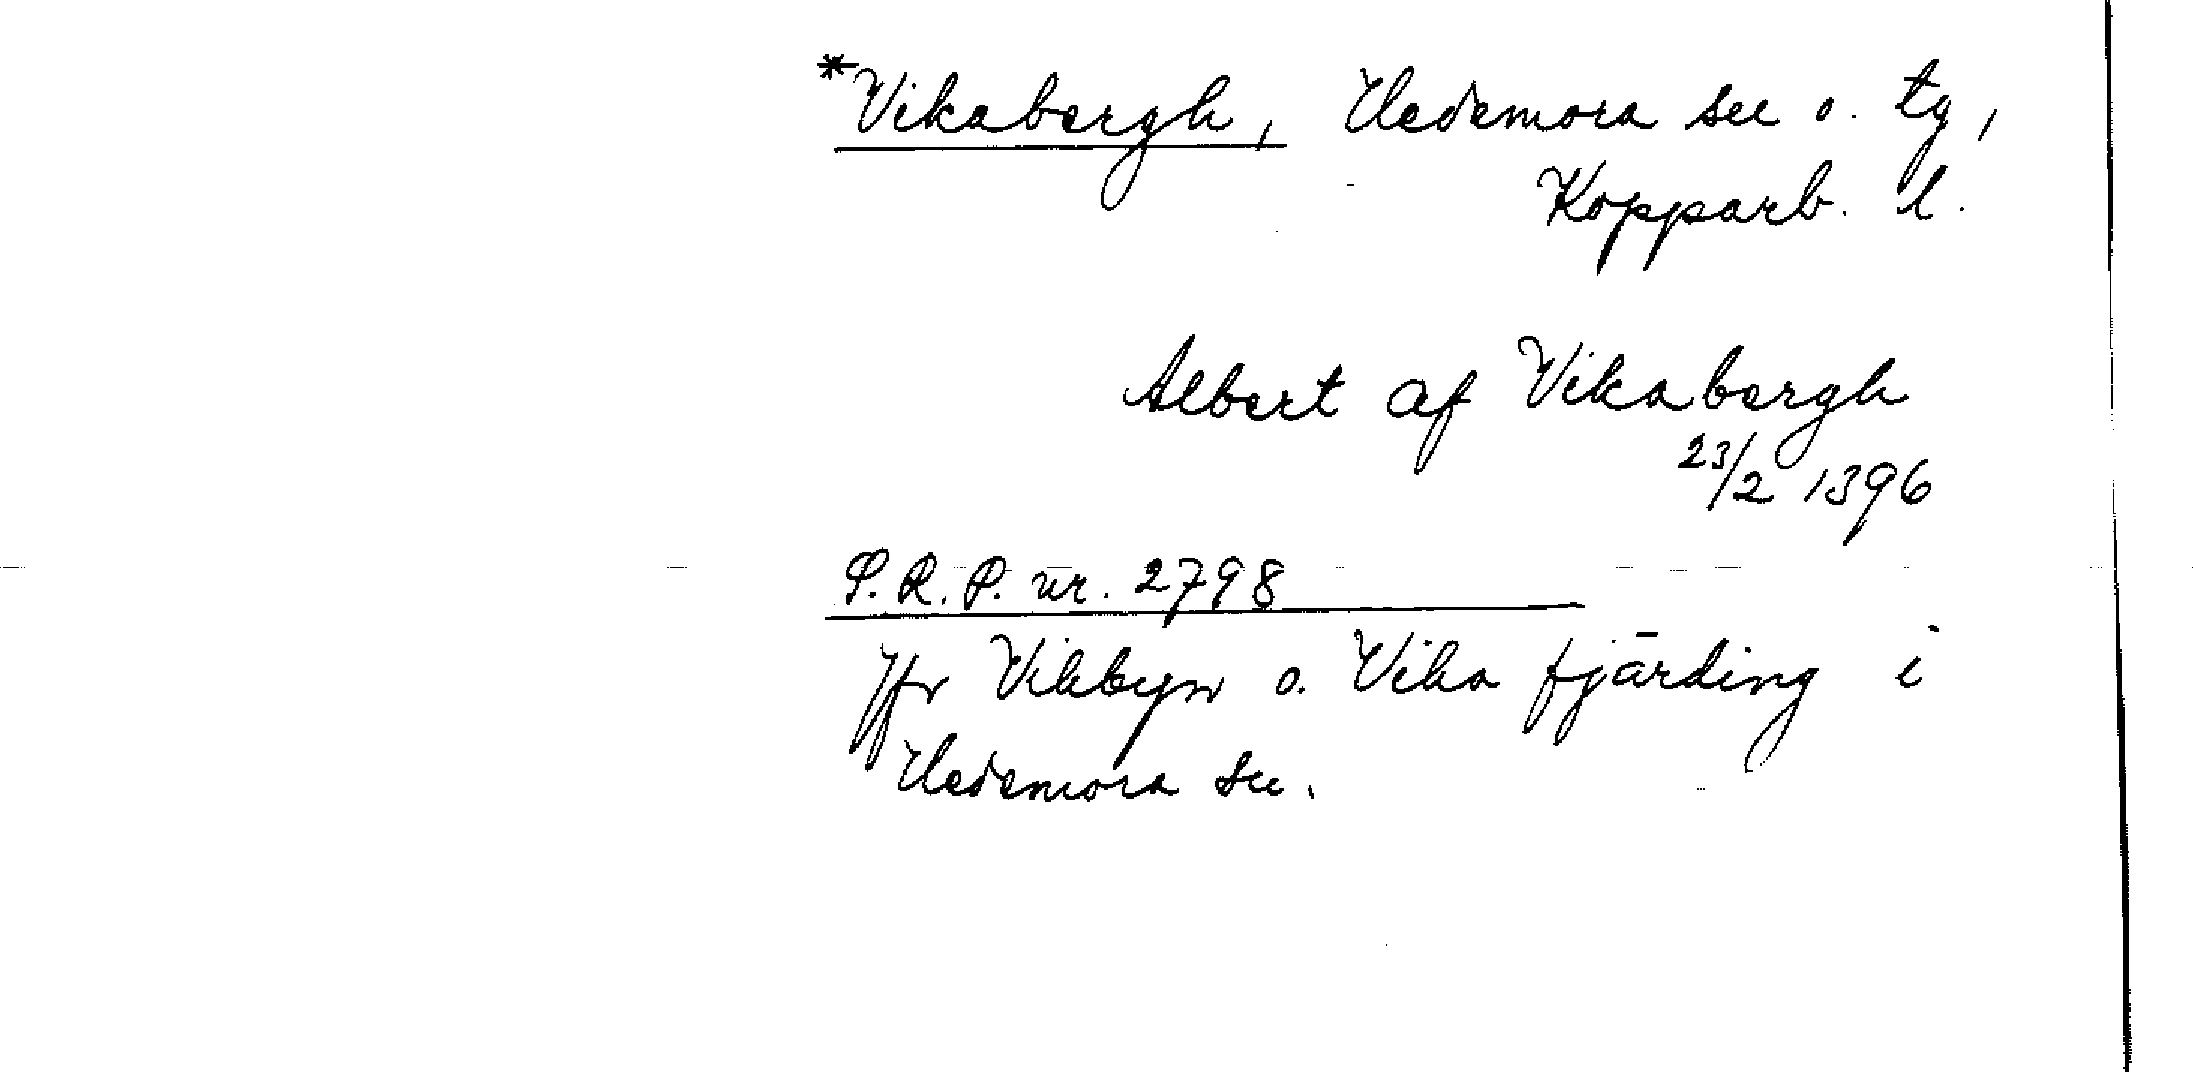 *Vikabergh, Hedemora sn o. tg,
Kopparb. l.
Albert af Vikabergh
23/2 1396
S.R.P. nr. 2798
Jfr Vikbyn o. Vika fjärding i
Hedemora sn.